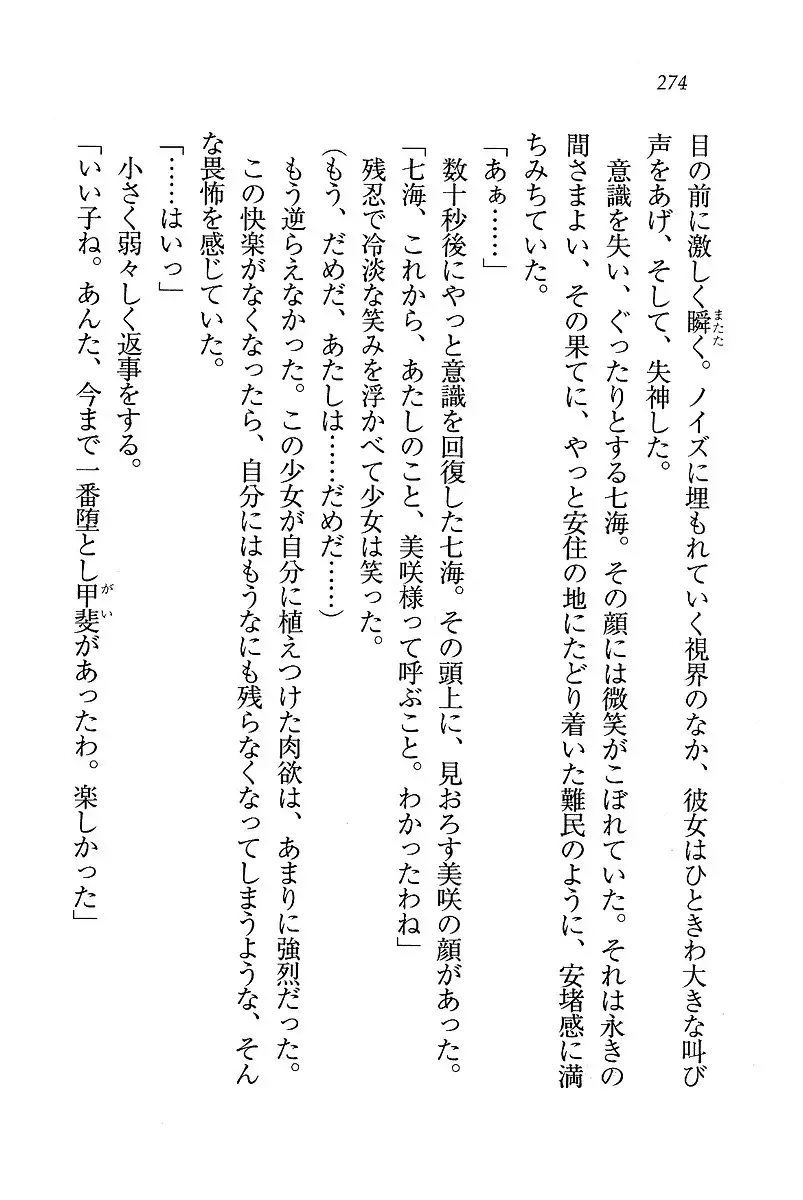 274
目の前に激しく瞬く。ノイズに埋もれていく視界のなか、彼女はひときわ大きな叫び
またた
声をあげ、そして、失神した。
意識を失い、ぐったりとする七海。その顔には微笑がこぼれていた。それは永きの
間さまよい、その果てに、やっと安住の地にたどり着いた難民のように、安堵感に満
ちみちていた。
「あぁ……」
数十秒後にやっと意識を回復した七海。その頭上に、見おろす美咲の顔があった。
「七海、これから、あたしのこと、美咲様って呼ぶこと。わかったわね」
残忍で冷淡な笑みを浮かべて少女は笑った。
(もう、だめだ、あたしは……だめだ……)
もう逆らえなかった。この少女が自分に植えつけた肉欲は、あまりに強烈だった。
この快楽がなくなったら、自分にはもうなにも残らなくなってしまうような、そん
な畏怖を感じていた。
「……はいっ」
小さく弱々しく返事をする。
「いい子ね。あんた、今まで一番堕とし甲斐があったわ。楽しかった」
がい